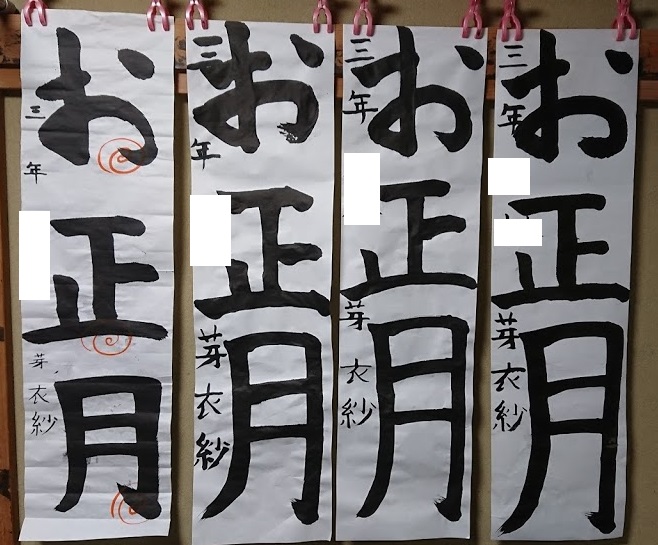 お正月
三年 芽衣紗
お正月
三年 芽衣紗
お正月
三年 芽衣紗
お正月
三年 芽衣紗